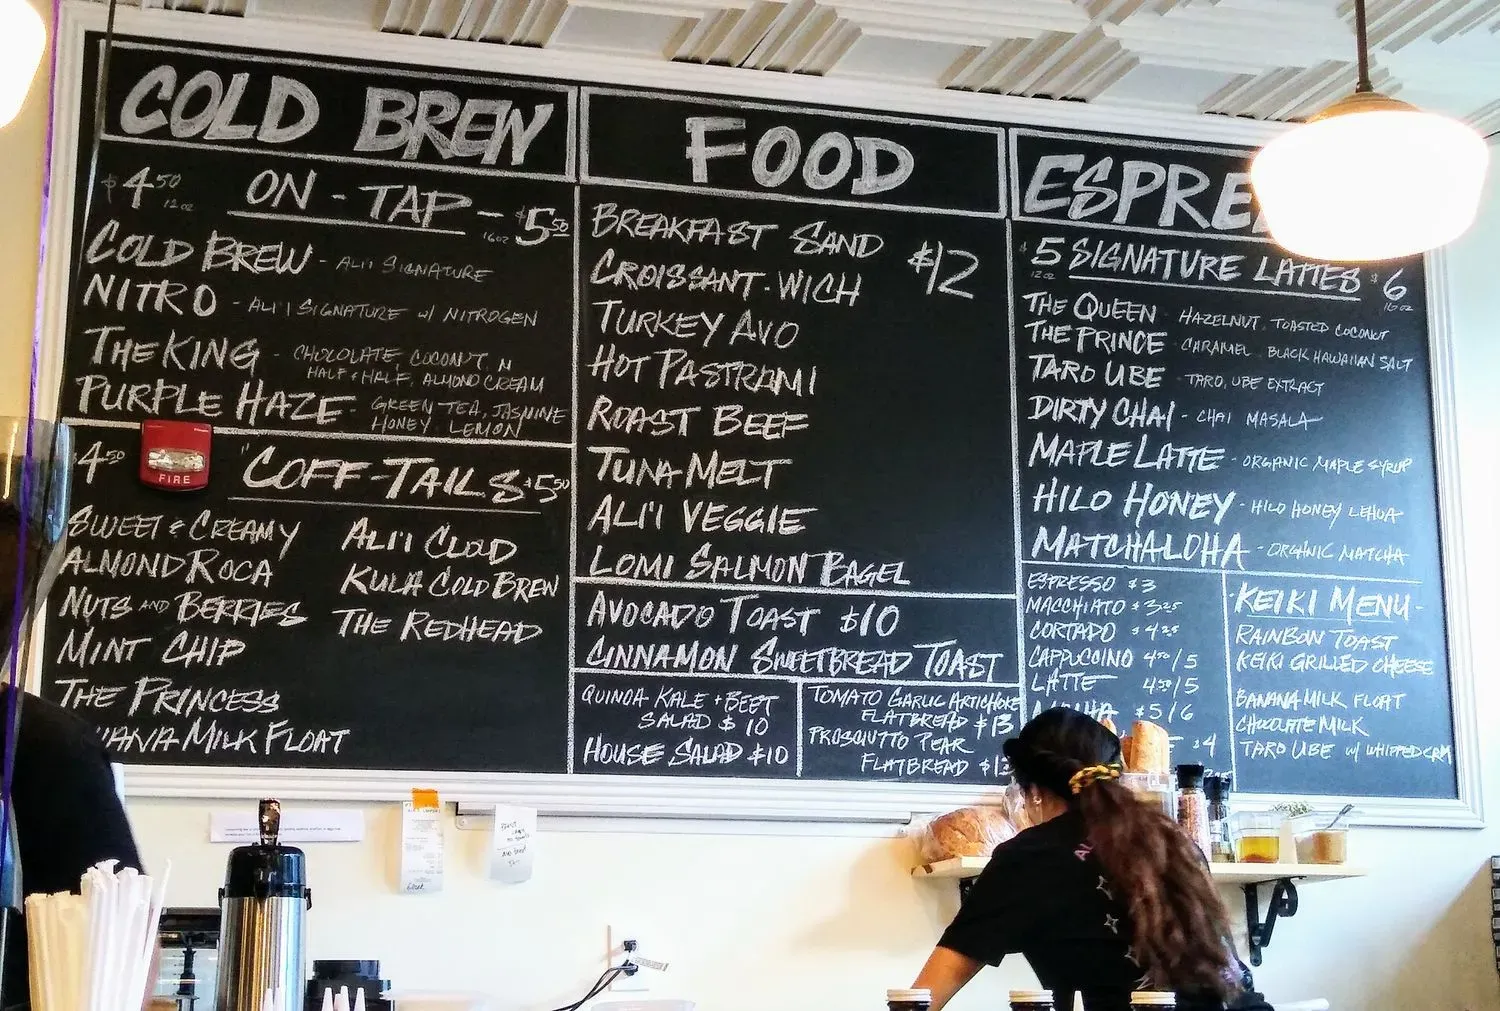 COLD BREW
$4.50 12oz ON-TAP - 16oz $5.50
COLD BREW - ALI'I SIGNATURE
NITRO - ALI'I SIGNATURE W/ NITROGEN
THE KING - CHOCOLATE, COCONUT, N
HALF & HALF, ALMOND CREAM
PURPLE HAZE - GREEN TEA, JASMINE
HONEY, LEMON
$4.50 "COFF-TAILS $5.50
FIRE
SWEET & CREAMY
ALMOND ROCA
NUTS AND BERRIES
MINT CHIP
THE PRINCESS
MILK FLOAT
ALI'I CLOUD
KULA COLD BREW
THE REDHEAD
FOOD
BREAKFAST SAND $12
CROISSANT-WICH
TURKEY AVO
HOT PASTRAMI
ROAST BEEF
TUNA MELT
ALI'I VEGGIE
LOMI SALMON BAGEL
AVOCADO TOAST $10
CINNAMON SWEETBREAD TOAST
QUINOA KALE + BEET
SALAD $10
HOUSE SALAD $10
TOMATO GARLIC ARTICHOKE
FLATBREAD $13
PROSCIUTTO PEAR
FLATBREAD
ESPRE
$5 12oz SIGNATURE LATTES $6 16oz
THE QUEEN - HAZELNUT, TOASTED COCONUT
THE PRINCE - CARAMEL, BLACK HAWAIIAN SALT
TARO UBE - TARO, UBE EXTRACT
DIRTY CHAI - CHAI MASALA
MAPLE LATTE - ORGANIC MAPLE SYRUP
HILO HONEY - HILO HONEY LEHUA
MATCHALOHA - ORGANIC MATCHA
ESPRESSO $3
MACCHIATO $3.25
CORTADO $4.25
CAPPUCCINO 4.50/5
LATTE 4.50/5
$5/6
$4
-KEIKI MENU-
RAINBOW TOAST
KEIKI GRILLED CHEESE
BANANA MILK FLOAT
CHOCOLATE MILK
TARO UBE W/ WHIPPED CRM